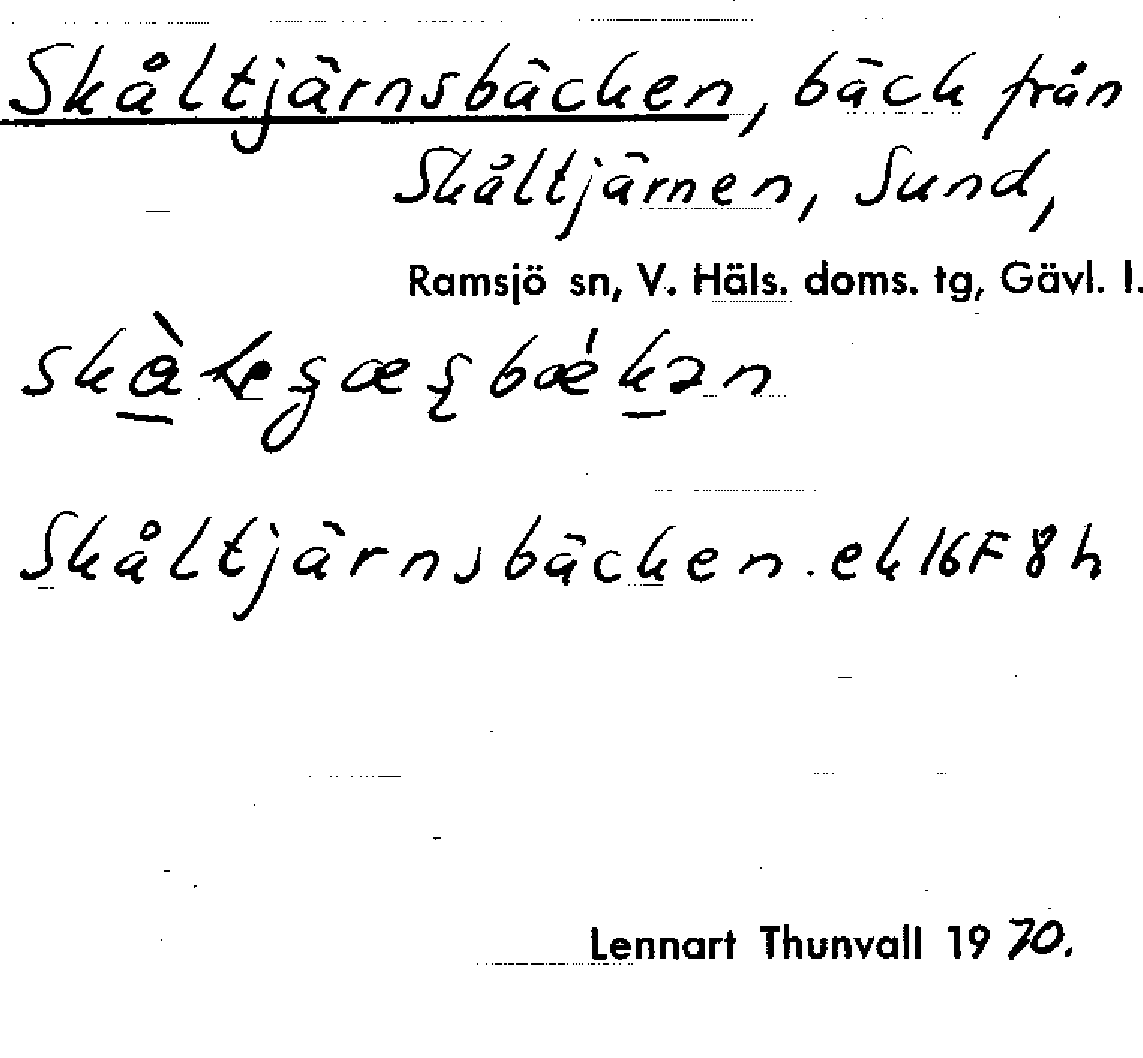 Skåltjärnsbäcken, bäck från
Skåltjärnen, Sund,
Ramsjö sn, V. Häls. doms. tg, Gävl. l.
Skåltjärnsbäcken. ek 16F 8h
Lennart Thunvall 1970.